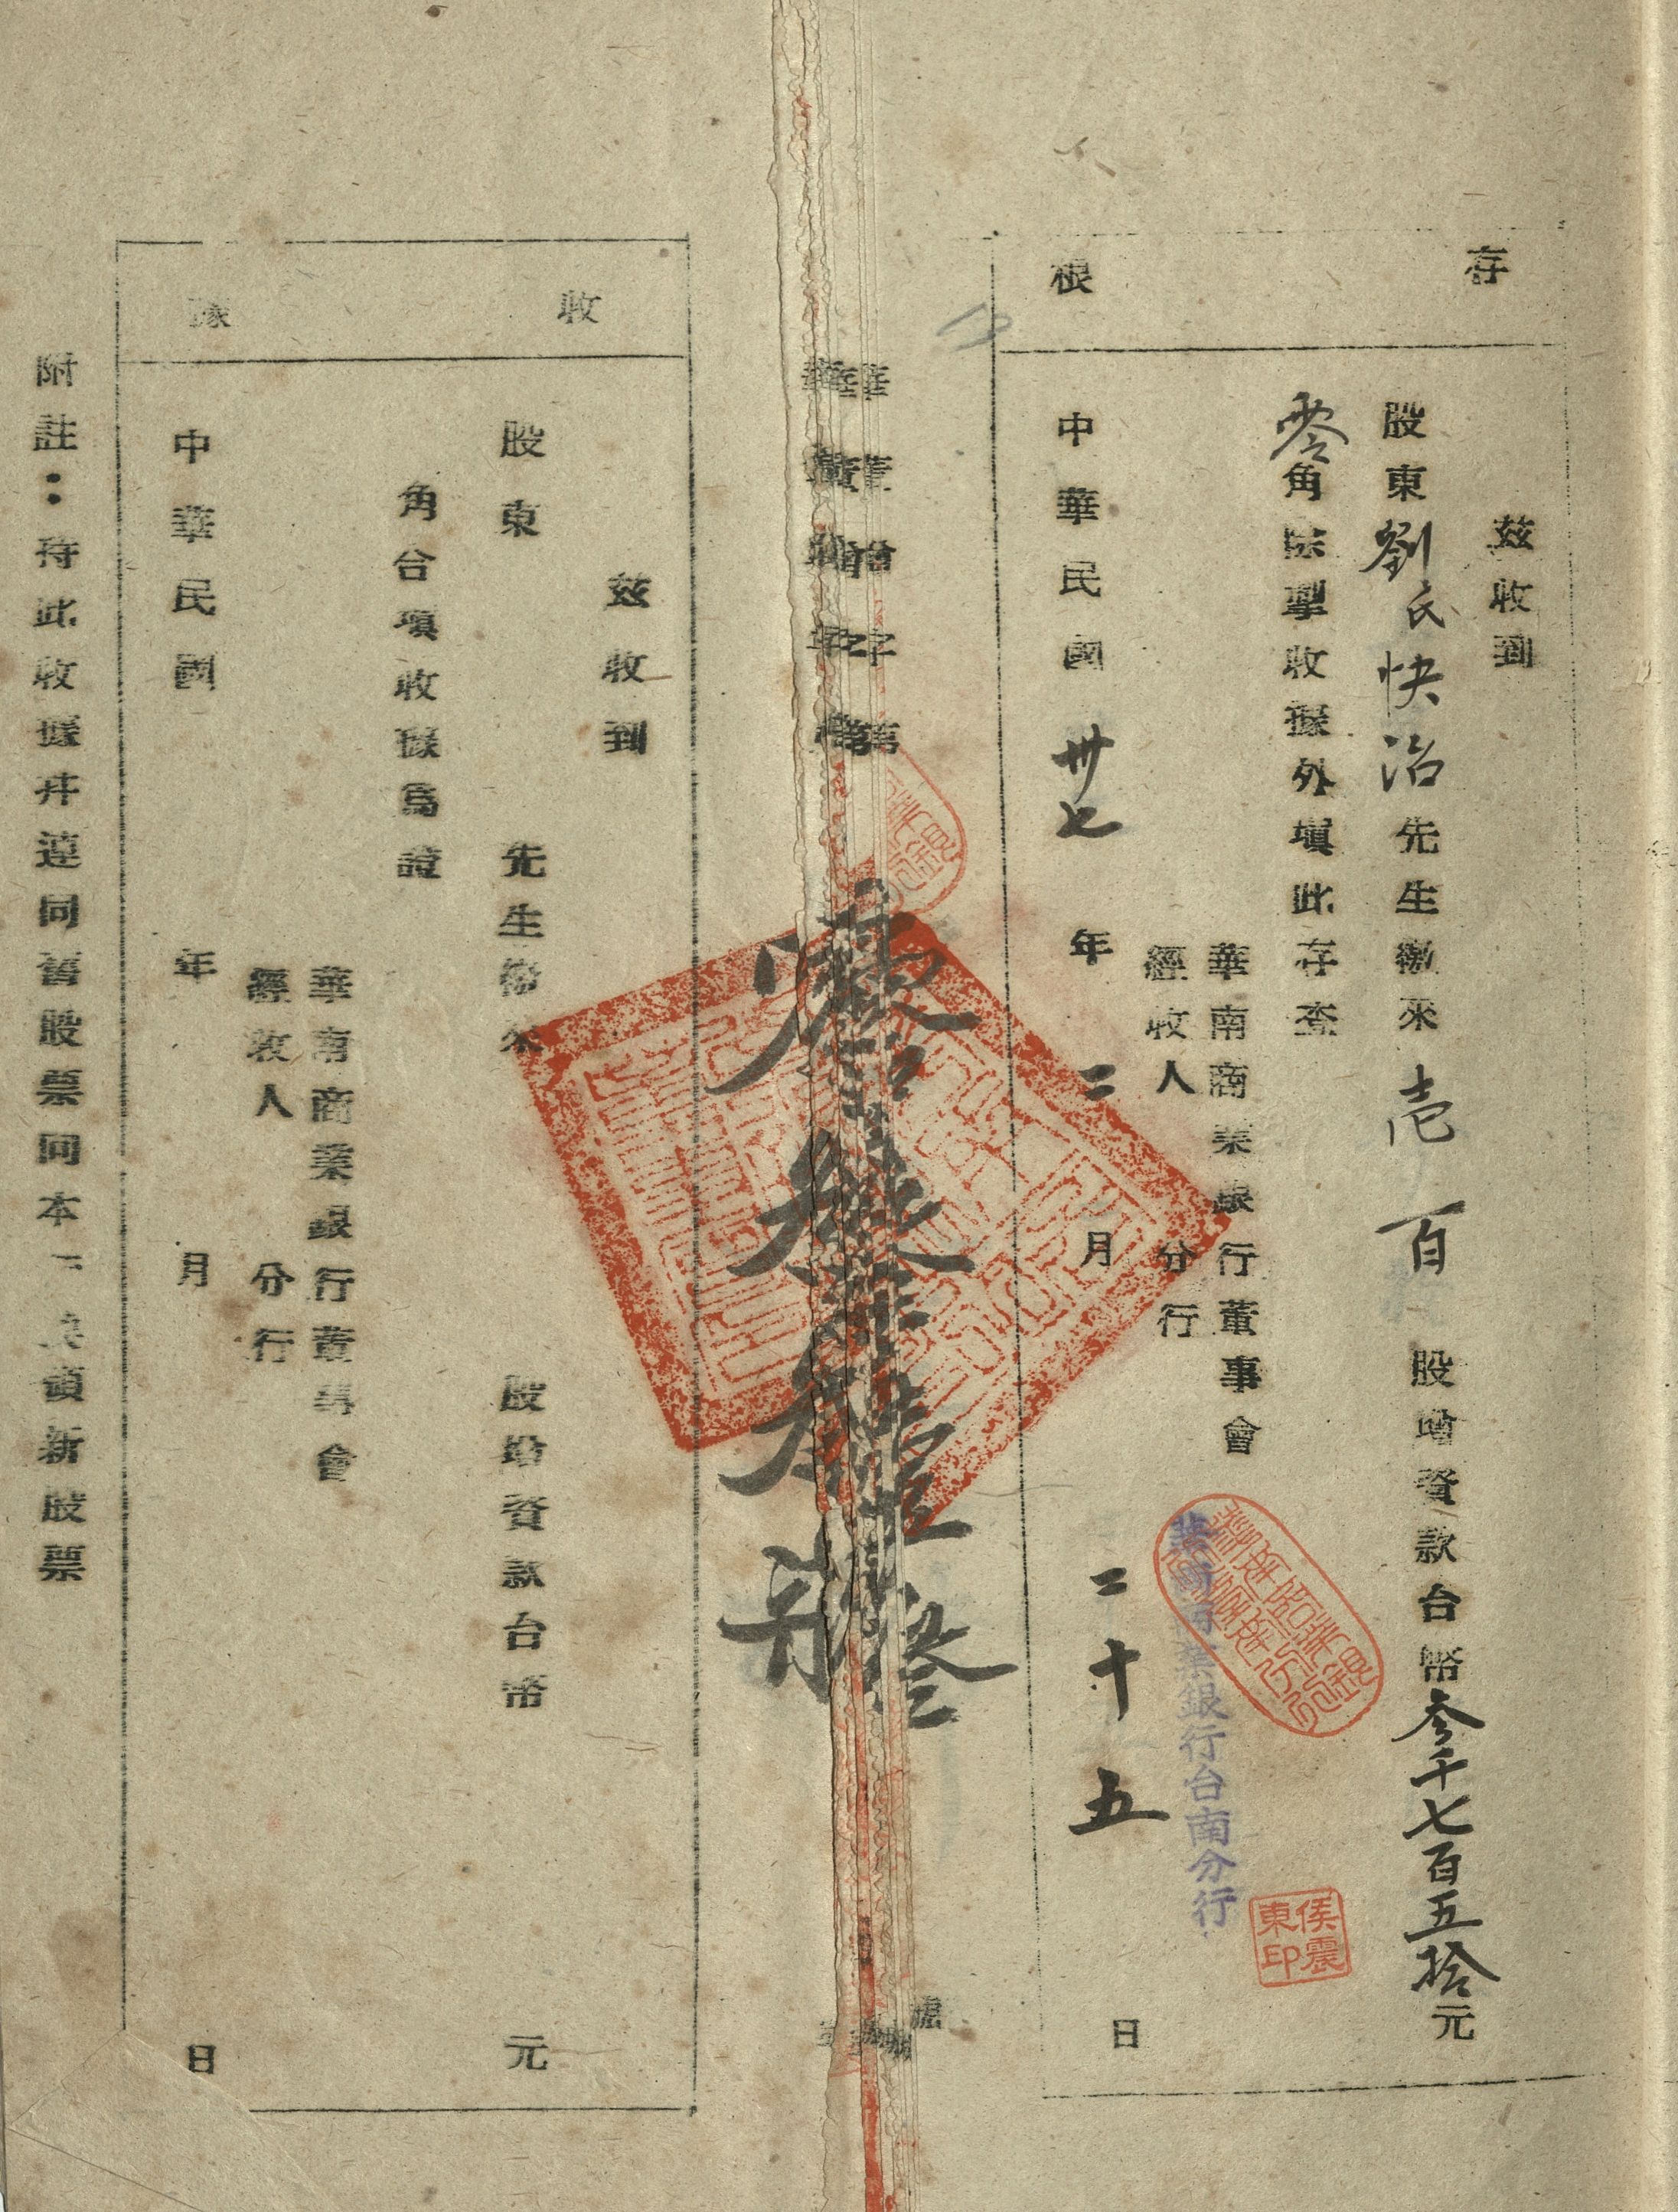 存根
茲收到
股東劉氏快治先生繳來壹百股增資款台幣叁千七百五拾元
零角除掣收據外填此存查
華南商業銀行董事會
經收人 分行
華南商業銀行台南分行
侯震東印
中華民國卅七年二月二十五日
華董增字第
號
收據
茲收到
股東 先生繳來 股增資款台幣 元
角合填收據為證
華南商業銀行董事會
經收人 分行
中華民國 年 月 日
附註：持此收據幷連同舊股票向本行換領新股票